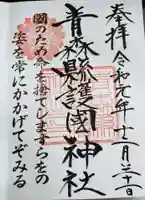 奉拝
令和元年十一月三十日
青森縣護國神社
國のため命を捨てしますらをの
姿を常にかかげてぞみる